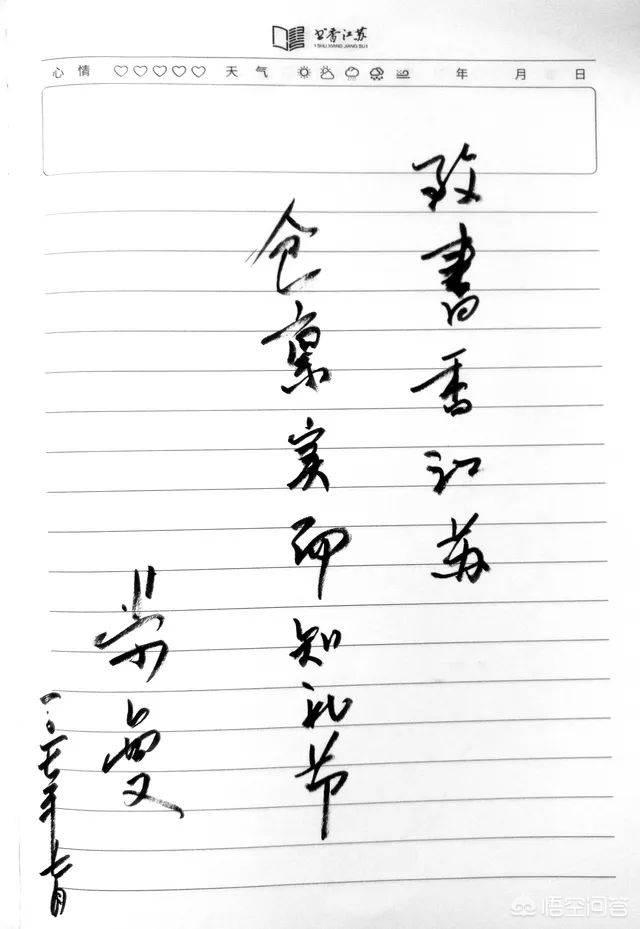 书香江苏
I SHU XIANG JIANG SU I
心情 ♡♡♡♡♡ 天气 年 月 日
致書香江苏
仓禀实而知礼节
蒙曼
二〇一七年七月
悟空问答